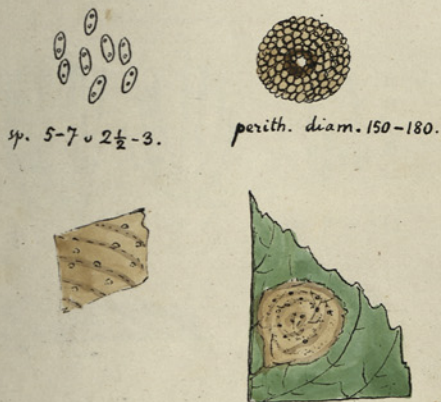 sp. 5-7 υ 2½-3.
perith. diam. 150-180.